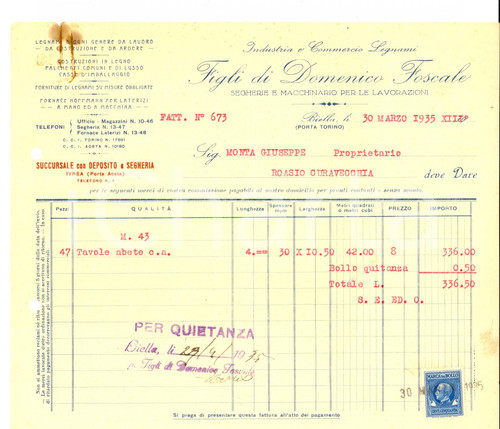 LEGNAMI D'OGNI GENERE DA LAVORO
DA COSTRUZIONE E DA ARDERE
COSTRUZIONI IN LEGNO
PALCHETTI COMUNI E DI LUSSO
CASSE D'IMBALLAGGIO
FORNITURE DI LEGNAMI SU MISURE OBBLIGATE
FORNACE HOFFMANN PER LATERIZI
A MANO ED A MACCHINA
TELEFONI
Ufficio - Magazzini N. 10-46
Segheria N. 13-47
Fornace Laterizi N. 13-48
C. C. I. TORINO N. 17991
C. C. I. AOSTA N. 1080
SUCCURSALE con DEPOSITO e SEGHERIA
IVREA (Porta Aosta)
TELEFONO N.
Industria e Commercio Legnami
Figli di Domenico Foscale
SEGHERIE E MACCHINARIO PER LE LAVORAZIONI
FATT. N° 673
Biella, li 30 MARZO 1935 XIII°
(PORTA TORINO)
Sig. MONTA GIUSEPPE Proprietario
ROASIO CURAVECCHIA deve Dare
per le seguenti merci di nostra commissione pagabili al nostro domicilio per pronti contanti - senza sconto.
Pezzi QUALITÀ Lunghezza Spessore mm. Larghezza Metri quadrati e metri cubi PREZZO IMPORTO
M. 43
47 Tavole abete c.a. 4.== 30 X 10.50 42.00 8 336.00
Bollo quitanza 0.50
Totale L. 336.50
S. E. ED O.
PER QUIETANZA
Biella, li 29/4/1935
p. Figli di Domenico Foscale
30 1935
MARCA DA BOLLO
Si prega di presentare questa fattura all'atto del pagamento